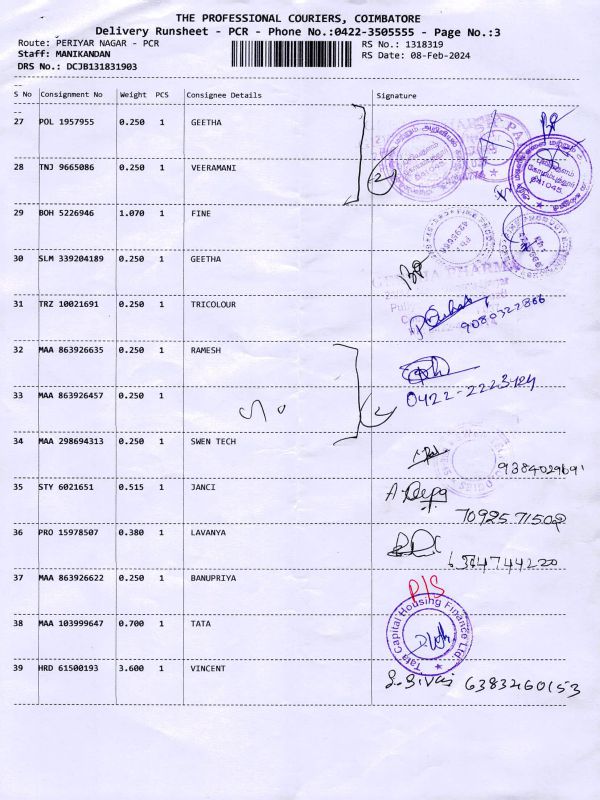 THE PROFESSIONAL COURIERS, COIMBATORE
Delivery Runsheet - PCR - Phone No.:0422-3505555 - Page No.:3
Route: PERIYAR NAGAR - PCR RS No.: 1318319
Staff: MANIKANDAN RS Date: 08-Feb-2024
DRS No.: DCJB131831903
S No Consignment No Weight PCS Consignee Details Signature
27 POL 1957955 0.250 1 GEETHA
28 TNJ 9665086 0.250 1 VEERAMANI
2
29 BOH 5226946 1.070 1 FINE
30 SLM 339204189 0.250 1 GEETHA
31 TRZ 10021691 0.250 1 TRICOLOUR
9080322866
32 MAA 863926635 0.250 1 RAMESH
33 MAA 863926457 0.250 1
0422-2223424
34 MAA 298694313 0.250 1 SWEN TECH
9384029691
35 STY 6021651 0.515 1 JANCI
7092571502
36 PRO 15978507 0.380 1 LAVANYA
6384744220
37 MAA 863926622 0.250 1 BANUPRIYA
R/S
38 MAA 103999647 0.700 1 TATA
Tata Capital Housing Finance Ltd.
39 HRD 61500193 3.600 1 VINCENT
6383460153